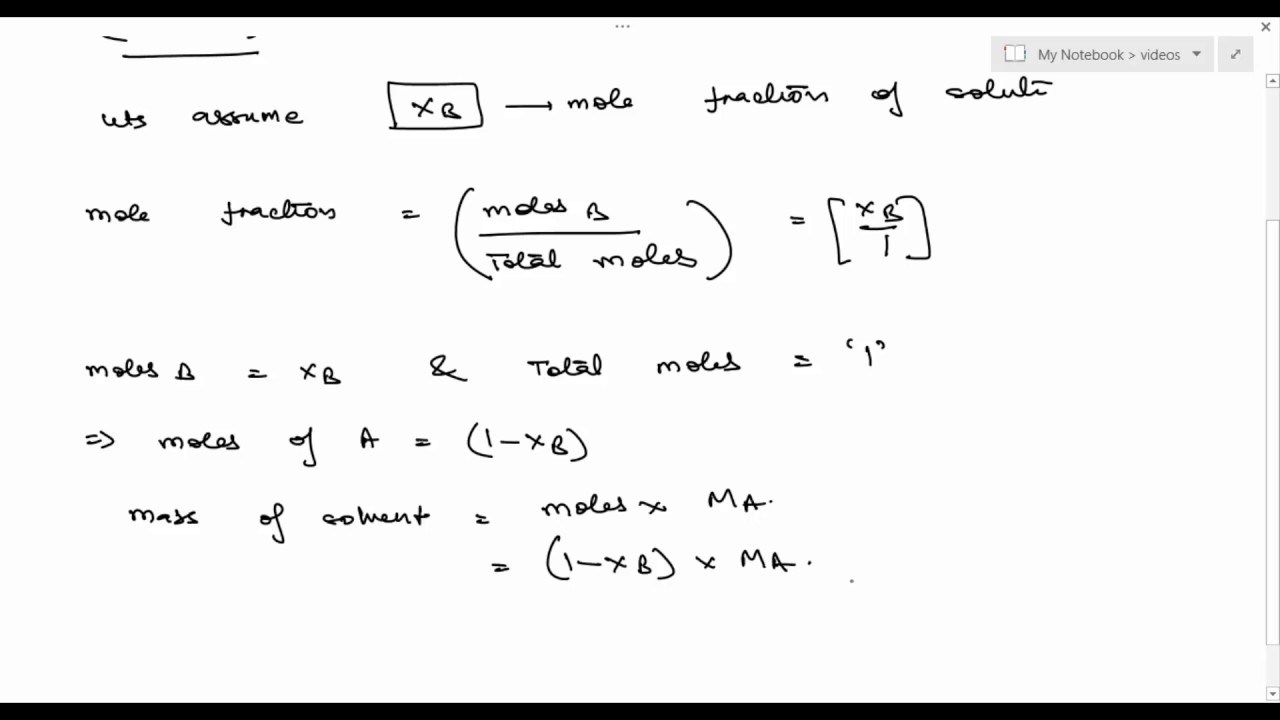 My Notebook > videos
lets assume XB → mole fraction of solute
mole fraction = (moles B / Total moles) = [XB / 1]
moles B = XB & Total moles = '1'
=> moles of A = (1-XB)
mass of solvent = moles x MA.
= (1-XB) x MA.